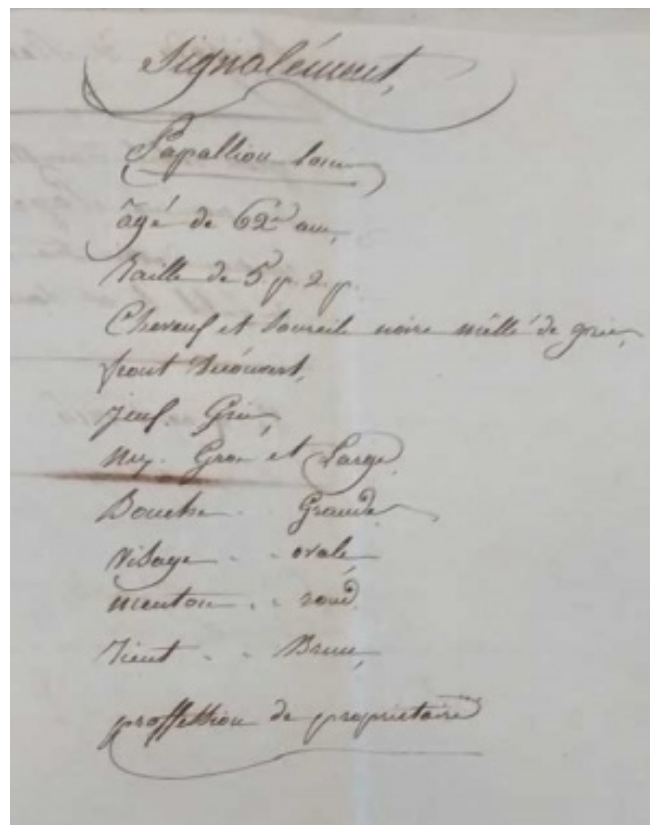 Signalément,
Papallion Louis
âgé de 62 ans,
Taille de 5. p. 2. p.
Cheveuf et Sourcils noirs mêllé de gris,
front découvert,
yeuf Gris,
Nez. Gros et Large
Bouche .. Grande
Visage .. ovale
menton .. rond
Tient .. Brun,
proffession de propriétaire